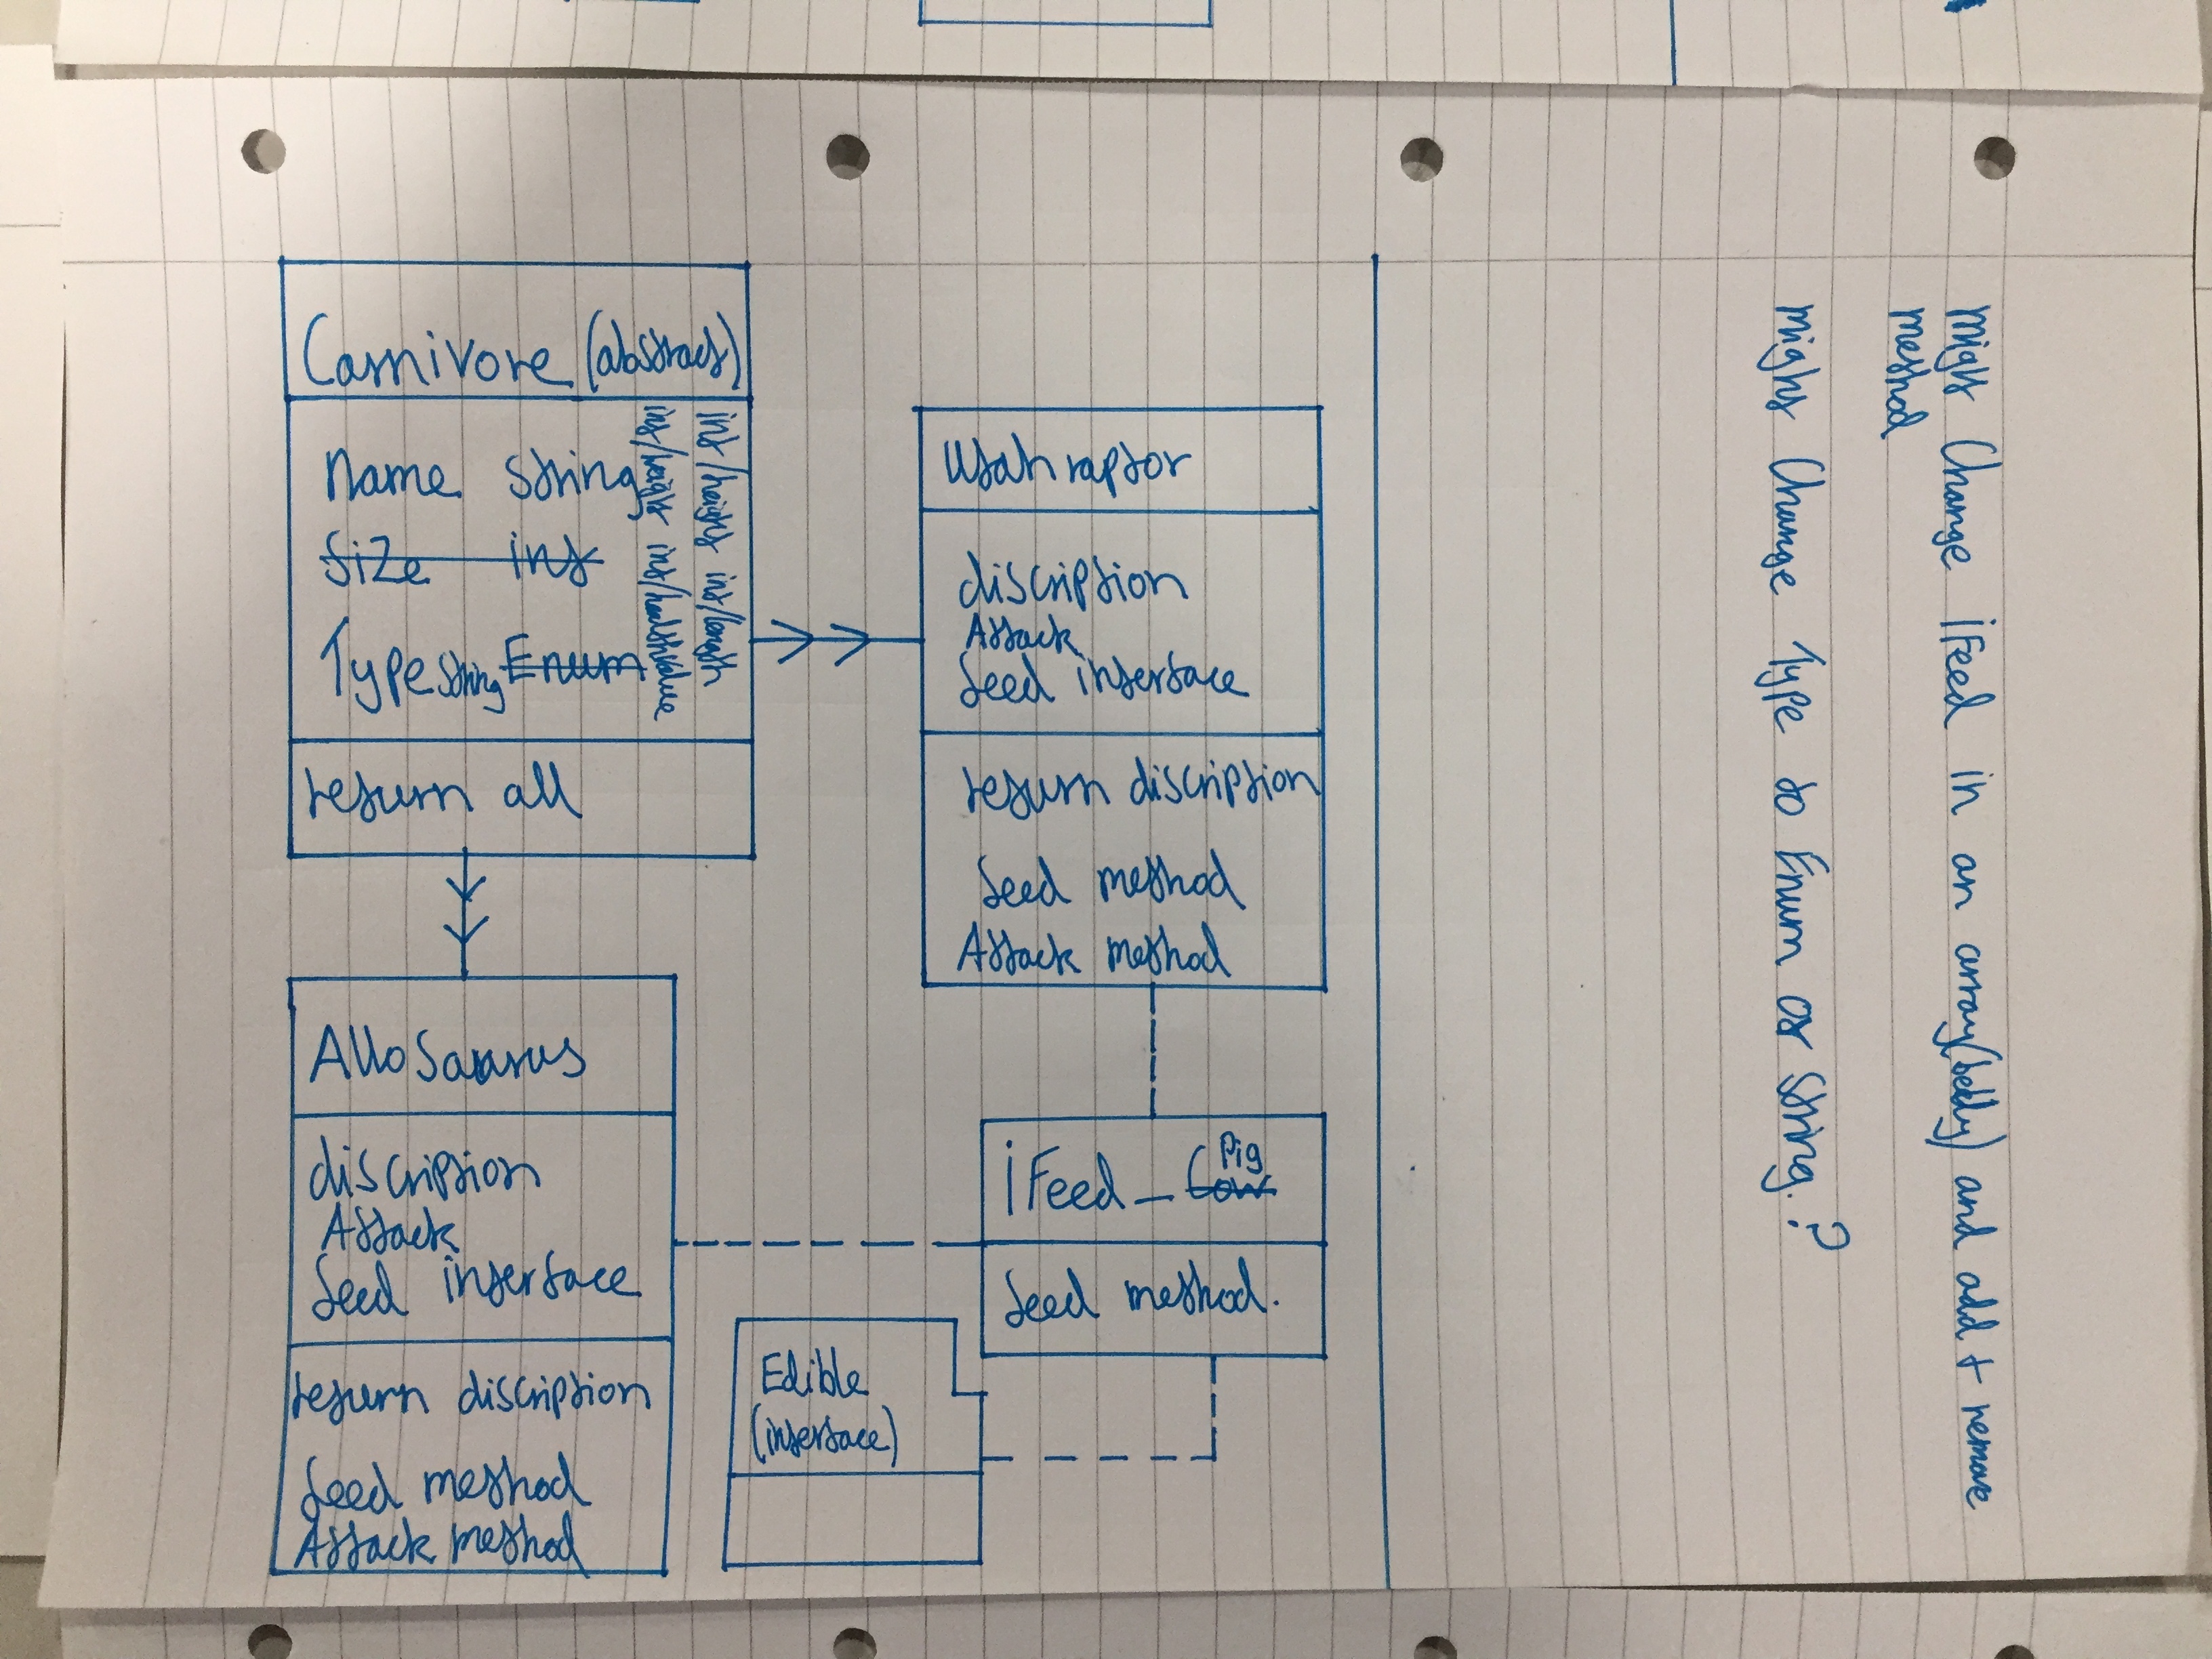 Carnivore (abstract)
Name string
Size int
Type string Enum
int/height int/length
int/weight int/healthvalue
return all
Utahraptor
discription
Attack
feed interface
return discription
feed method
Attack method
Allosaurus
discription
Attack
feed interface
return discription
feed method
Attack method
iFeed_Cow Pig
feed method.
Edible
(interface)
Might Change iFeed in an array(belly) and add + remove
method
Might Change Type to Enum or String.?